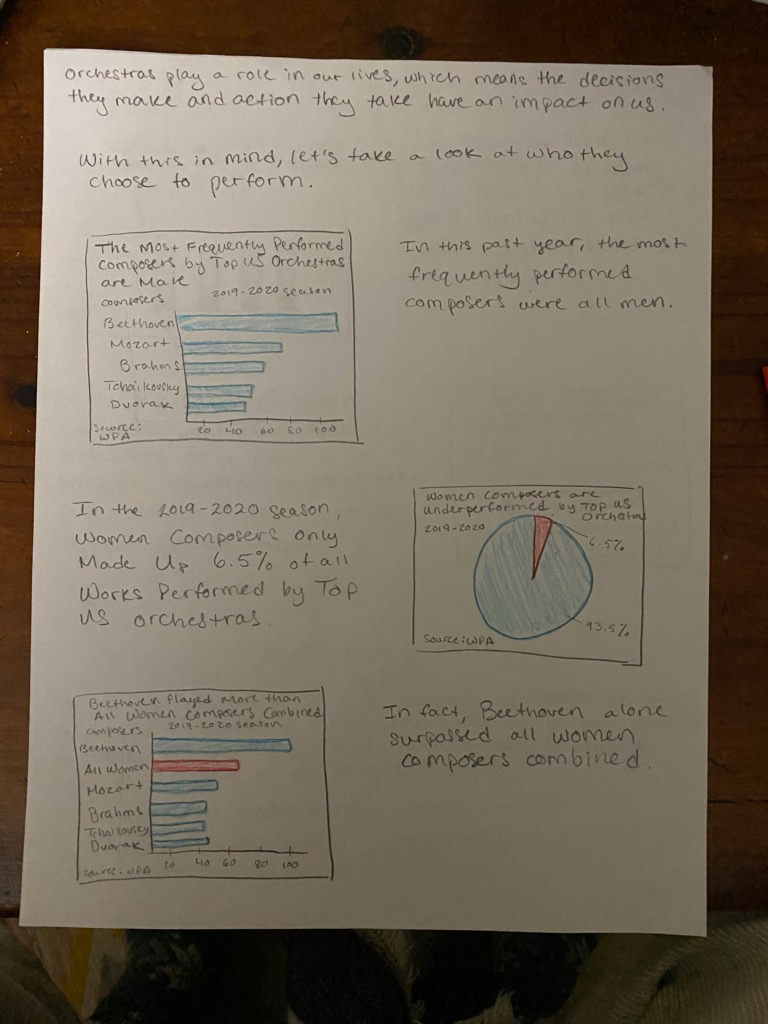 Orchestras play a role in our lives, which means the decisions
they make and action they take have an impact on us.
With this in mind, let's take a look at who they
choose to perform.
The Most Frequently Performed
Composers by Top US Orchestras
are Male
composers 2019-2020 season
Beethoven
Mozart
Brahms
Tchaikovsky
Dvorak
20 40 60 80 100
Source:
WPA
In this past year, the most
frequently performed
composers were all men.
In the 2019-2020 season,
Women Composers Only
Made Up 6.5% of all
Works Performed by Top
US orchestras.
Women Composers are
underperformed by Top US
Orchestras
2019-2020
6.5%
93.5%
Source: WPA
Beethoven Played More than
All Women Composers Combined
2019-2020 season
composers
Beethoven
All Women
Mozart
Brahms
Tchaikovsky
Dvorak
20 40 60 80 100
Source: WPA
In fact, Beethoven alone
surpassed all women
composers combined.